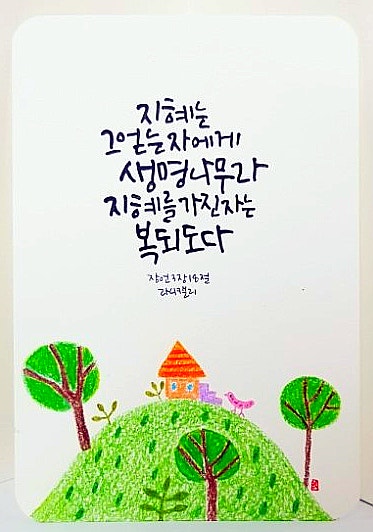 지혜는
그얻는자에게
생명나무라
지혜를가진자는
복되도다
잠언3장18절
라니캘리